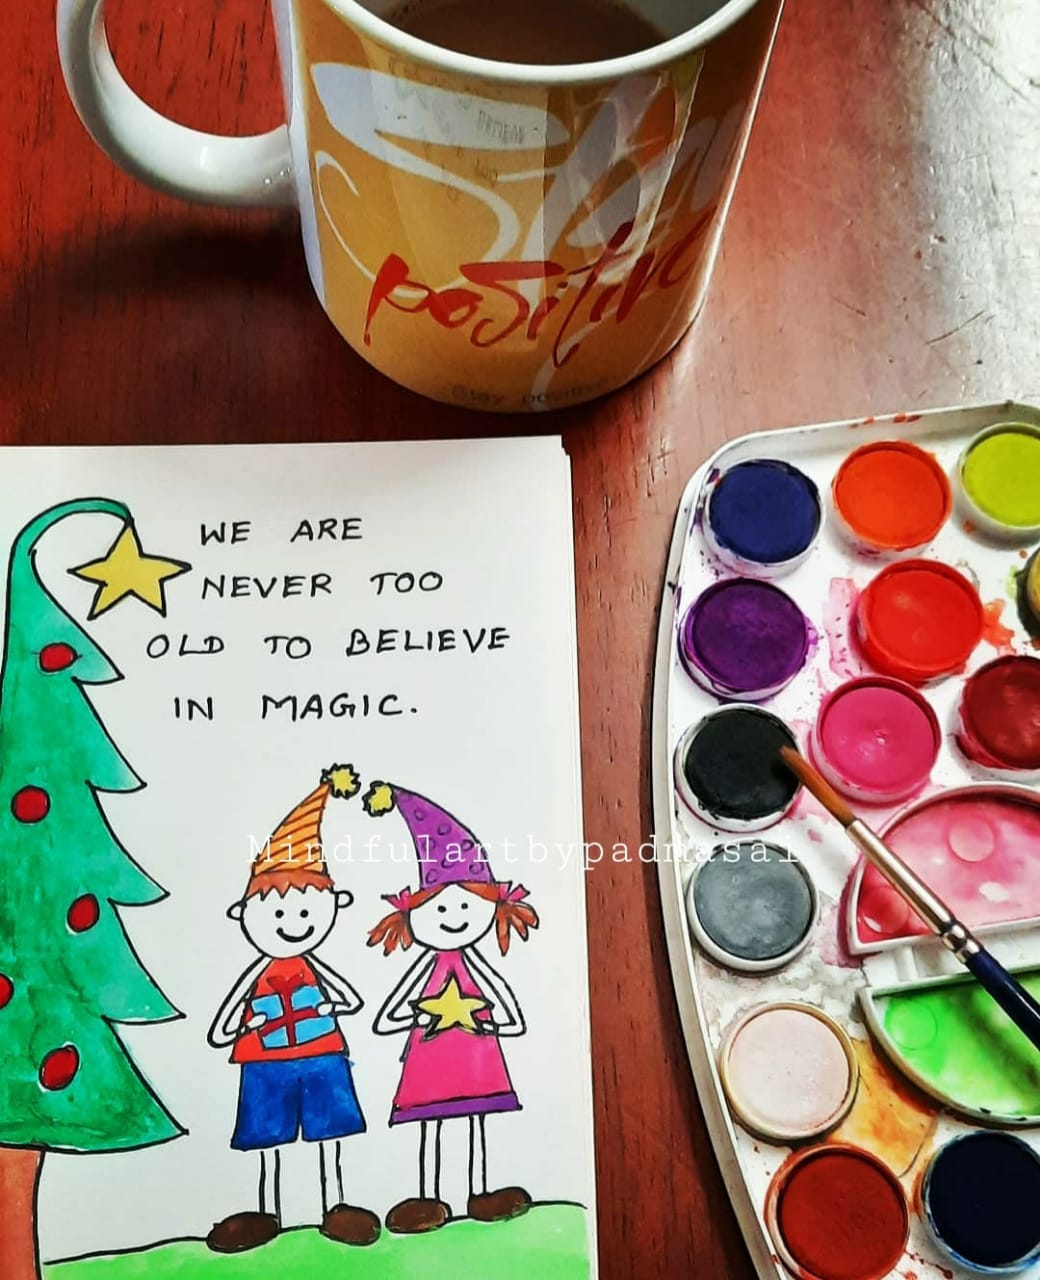 positive
Stay positive
WE ARE
NEVER TOO
OLD TO BELIEVE
IN MAGIC.
Mindfulartbypadmasai